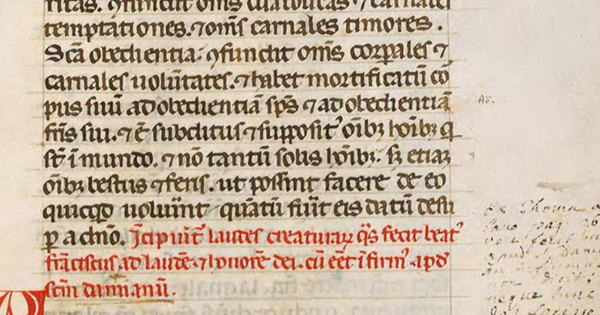 ritas. ꝯfundit om̄s diabolicas ⁊ carnales
temptationes. ⁊ om̄s carnales timores.
Scā obedientia. ꝯfundit om̄s corꝑales ⁊
carnales uolūtates. ⁊ habet mortificatū cor
pus suū ad obedientiā sp̄s ⁊ ad obedientiā
fr̄is sui. ⁊ ē subditus ⁊ supposit᾽ oīb; hoīb; q
st̄ ī mundo. ⁊ nō tantū solis hoīb;. s; etiam
oīb; bestiis ⁊ feris. ut possint facere de eo
quicqd uoluīnt quātū fūīt eis datū desu
ꝑ a dn̄o. Īcipiūt laudes creaturaꝝ q̄s fecit beat᾽
frāciscus ad laudē ⁊ honorē dei. cū eēt ī firm᾽ apd
scm̄ damianū.